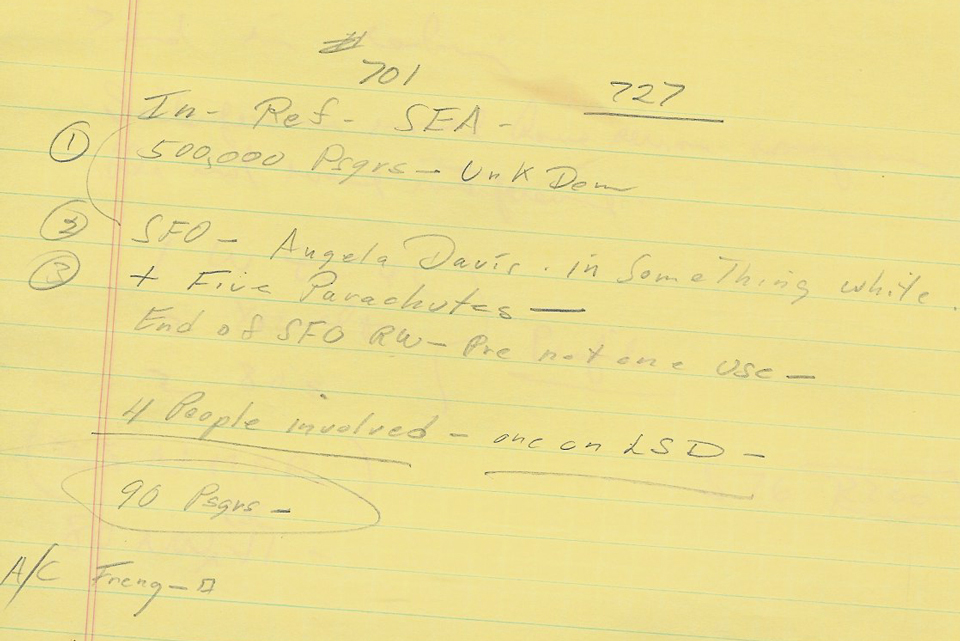 # 701
727
In - Ref - SEA -
① 500,000 Psgrs - Unk Dem
② SFO - Angela Davis . in something white .
③ + Five Parachutes —
End of SFO RW - Pre not one use —
4 People involved - one on LSD -
90 Psgrs -
A/C Freng -